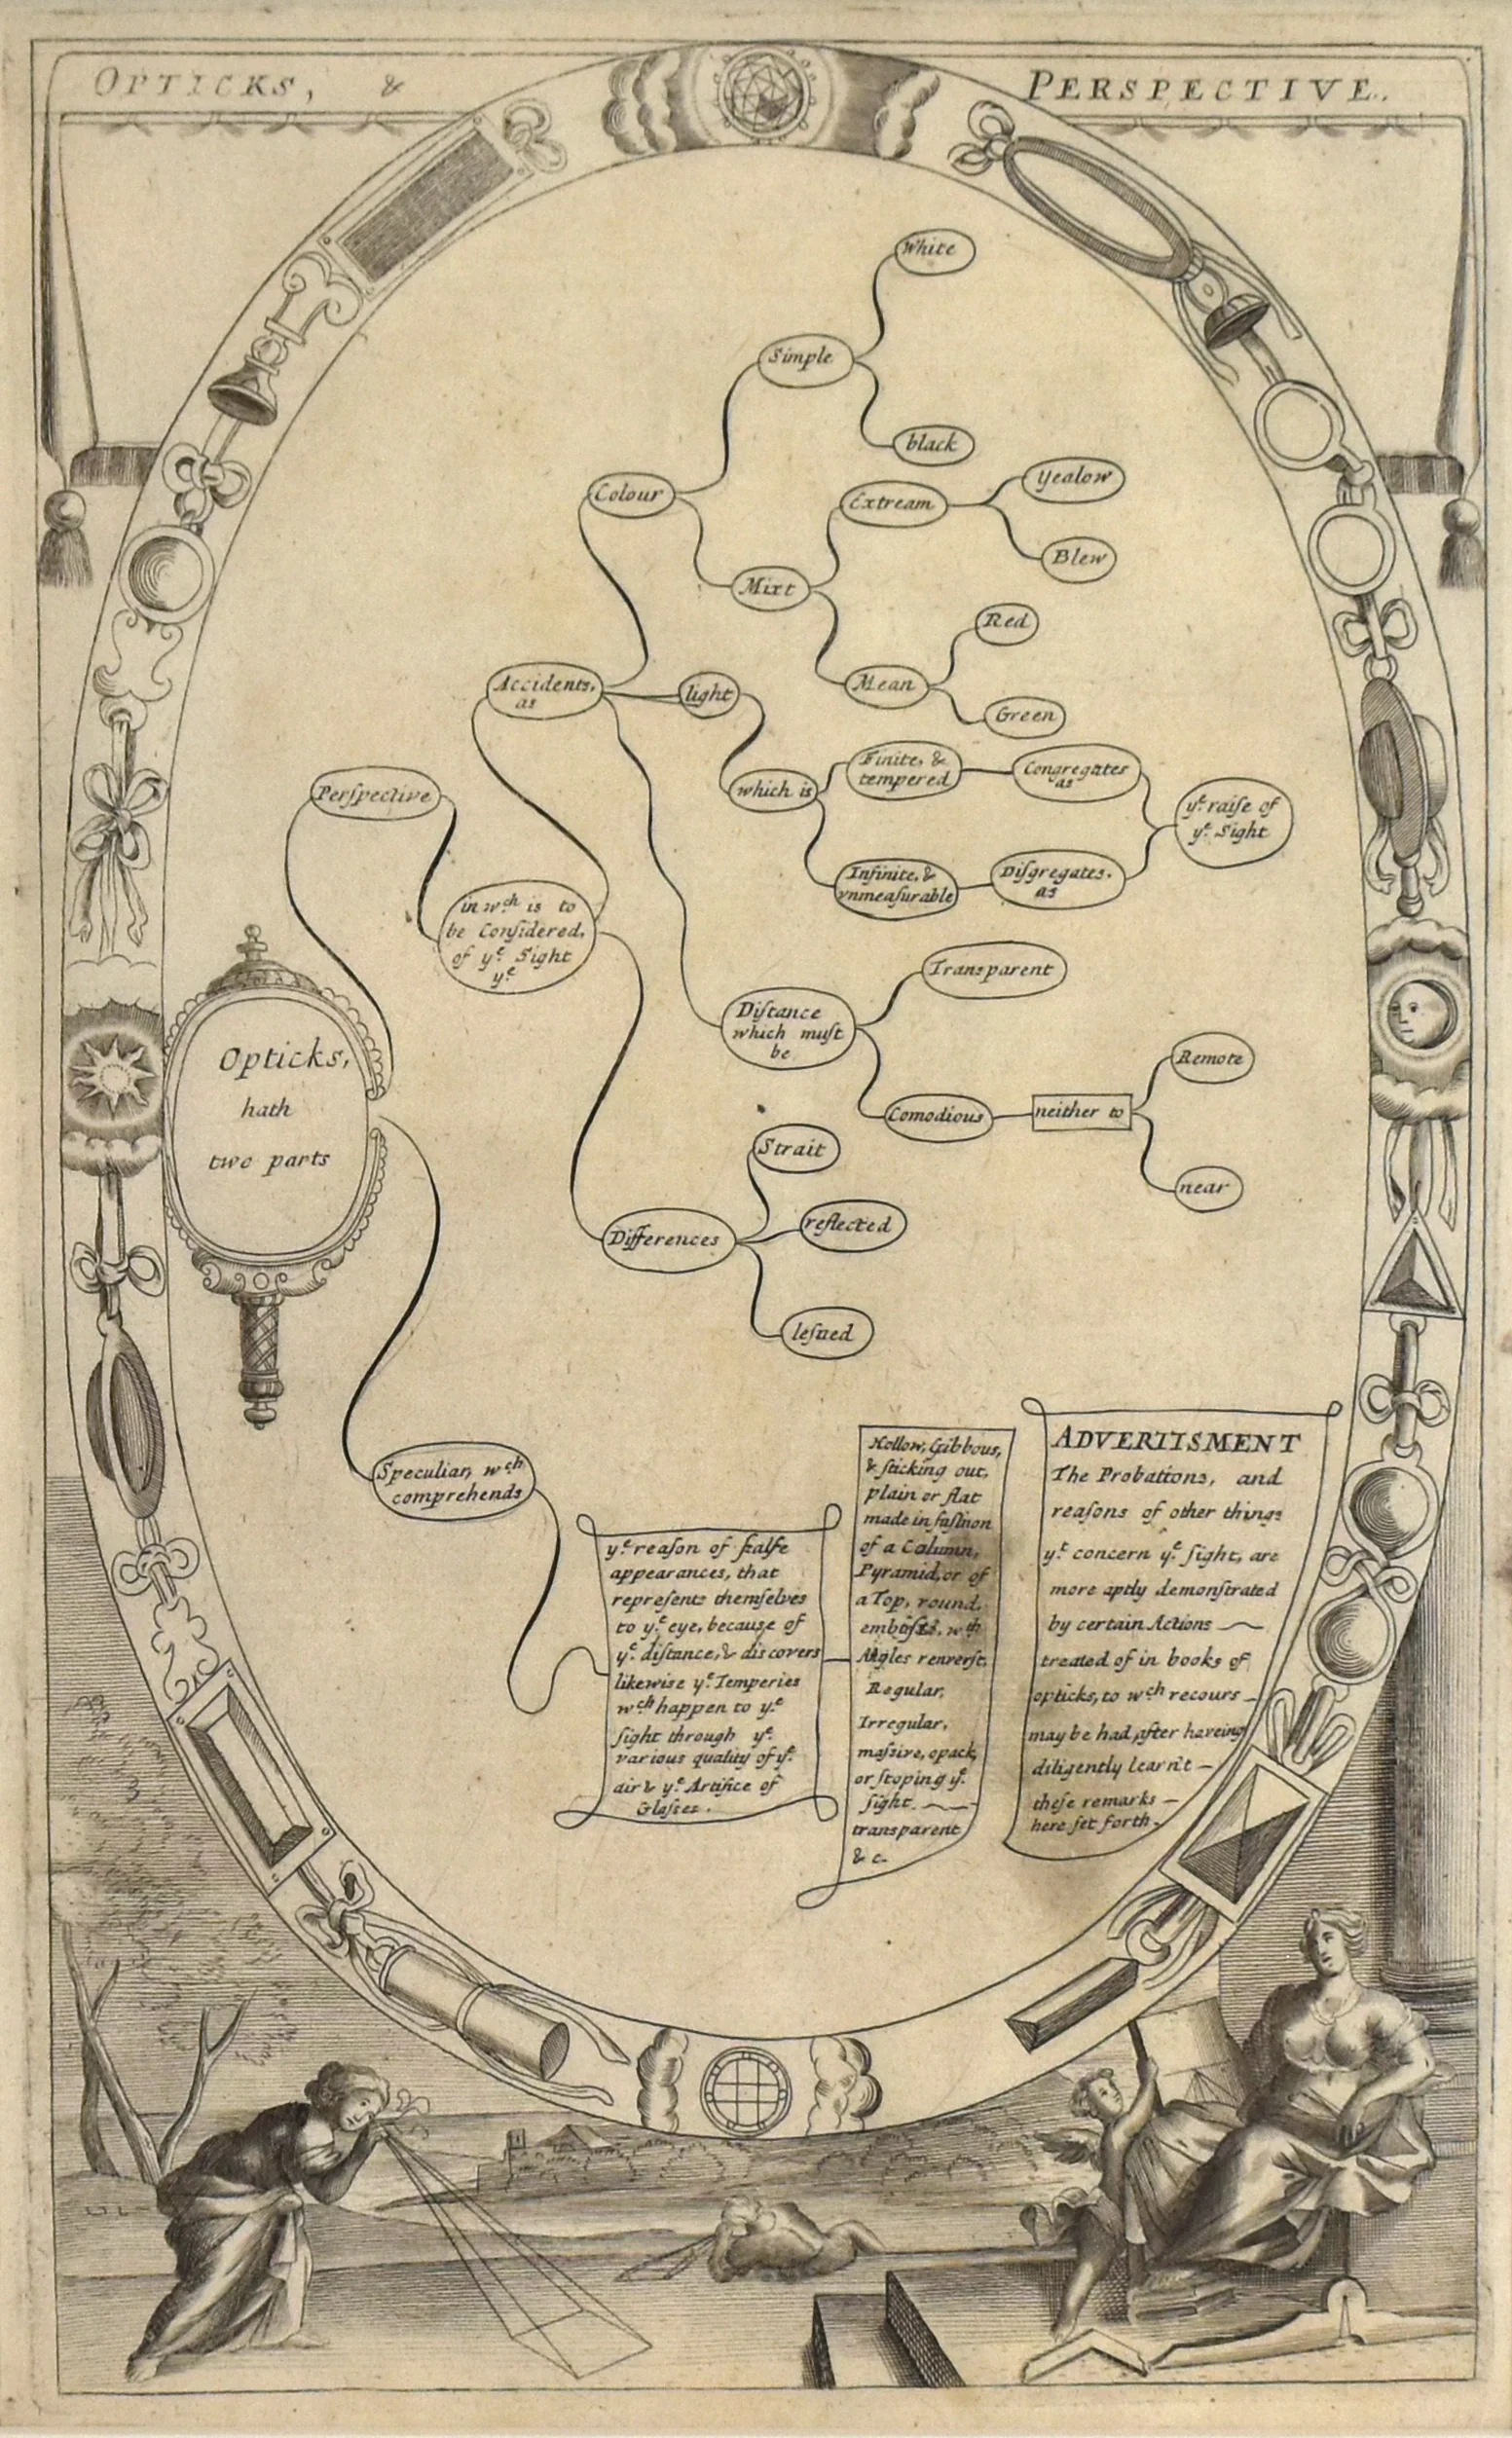 OPTICKS, & PERSPECTIVE.
White
Simple
black
Colour
Extream
Yealow
Blew
Mixt
Red
Mean
Green
Accidents,
as
light
which is
Finite, &
tempered
Congregates
as
yͤ raiſe of
yͤ Sight
Infinite, &
vnmeaſurable
Diſgregates.
as
Perſpective
in wᶜʰ is to
be Conſidered,
of yͤ Sight
yͤ
Transparent
Diſtance
which muſt
be
Remote
Comodious
neither to
near
Opticks,
hath
two parts
Strait
reflected
Differences
Speculiar, wᶜʰ
comprehends
yͤ reaſon of falſe
appearances, that
repreſents themſelves
to yͤ eye, because of
yͤ diſtance, & discovers
likewise yͤ Temperies
wᶜʰ happen to yͤ
ſight through yͤ
various quality of yͤ
air & yͤ Artifice of
Glaſses.
Hollow, Gibbous,
& ſticking out,
plain or flat
made in faſhion
of a Column,
Pyramid, or of
a Top, round,
wᵗʰ
Angles renverſt,
Regular,
Irregular,
maſsive, opack,
or ſtoping yͤ
ſight.
transparent
& c.
ADVERTISMENT
The Probations, and
reaſons of other things
yᵗ concern yͤ ſight, are
more aptly demonſtrated
by certain Actions
treated of in books of
opticks, to wᶜʰ recours
may be had, after haveing
diligently learn't
theſe remarks
here ſet forth.